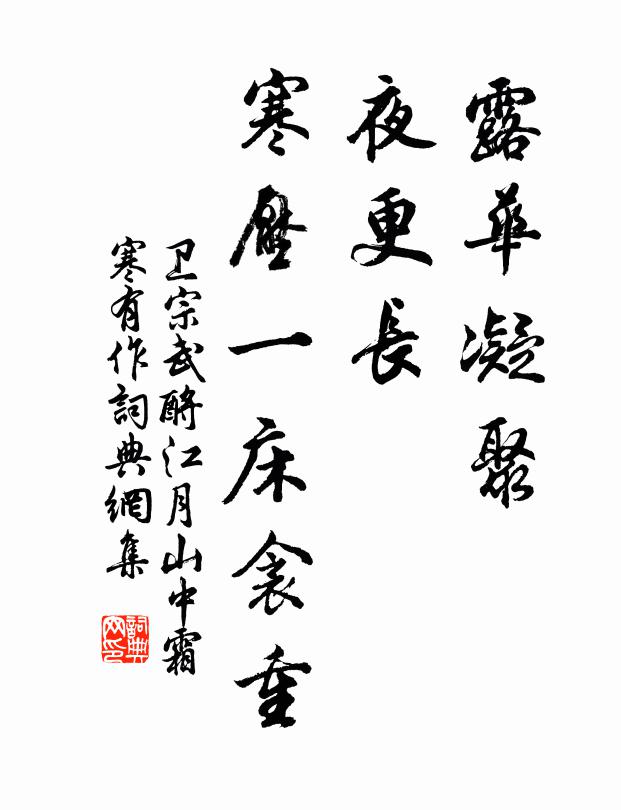 露華凝聚
夜更長
寒壓一床衾重
卫宗武酹江月山中霜
寒有作詞典網集
詞典
网印